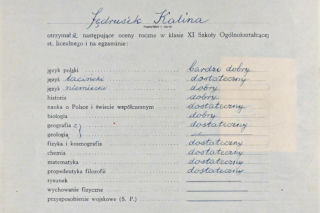 Jędrusik Kalina
otrzymał następujące oceny roczne w klasie XI Szkoły Ogólnokształcącej
st. licealnego i na egzaminie:
język polski bardzo dobry
język łaciński dostateczny
język niemiecki dobry
historia dobry
nauka o Polsce i świecie współczesnym dobry
biologia dobry
geografia dostateczny
geologia
fizyka i kosmografia dostateczny
chemia dostateczny
matematyka dostateczny
propedeutyka filozofii dostateczny
rysunek
wychowanie fizyczne
przysposobienie wojskowe (S. P.)